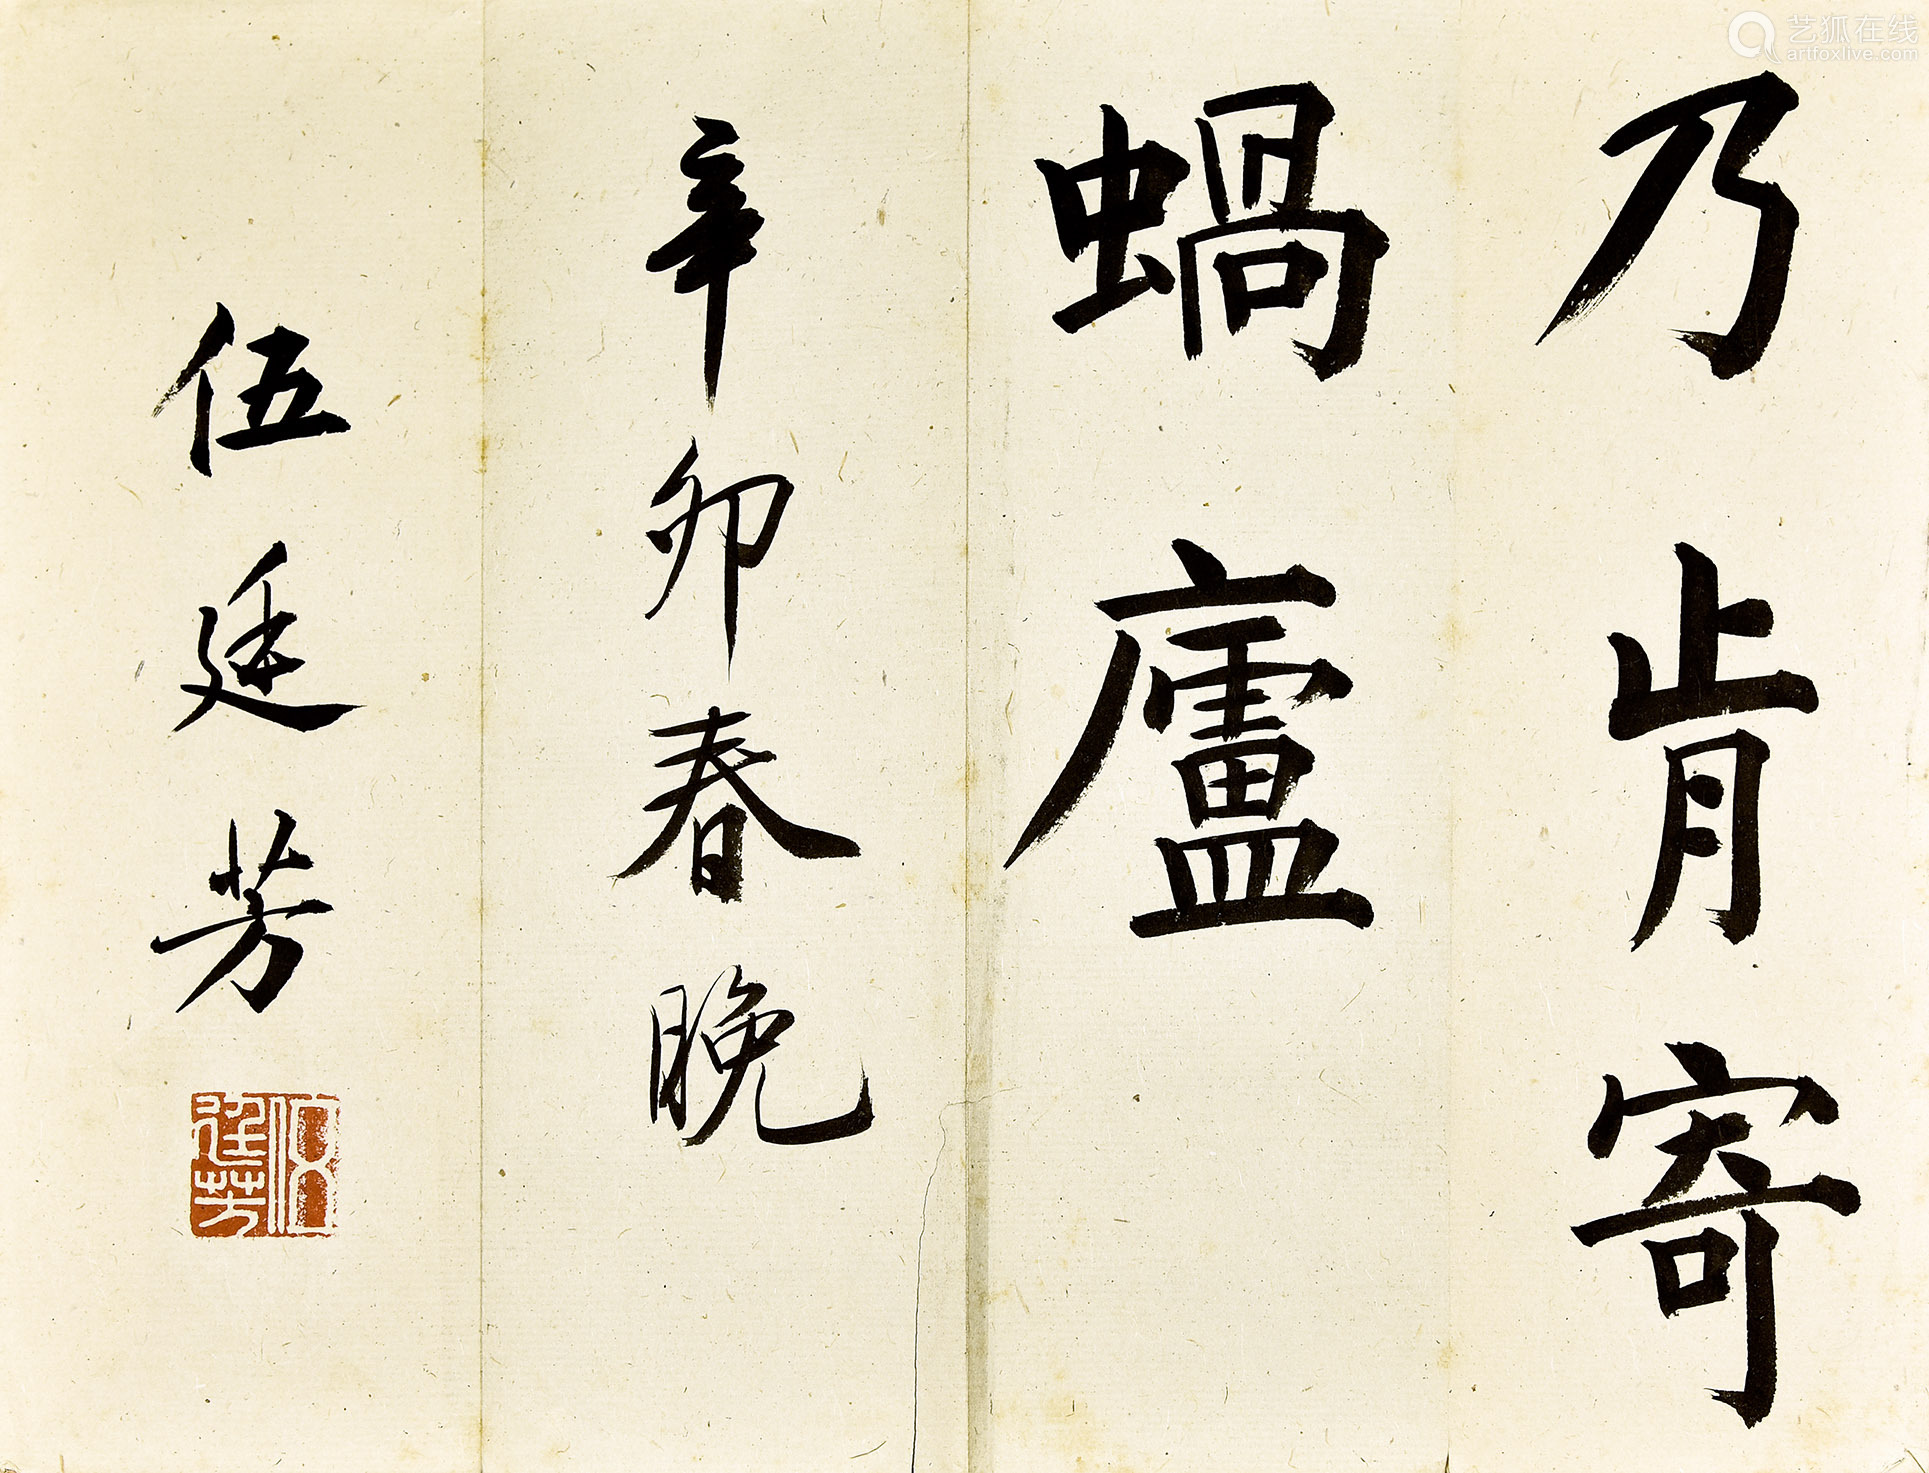 乃肯寄
蝸廬
辛卯春晚
伍廷芳
伍廷芳
艺狐在线
artfoxlive.com